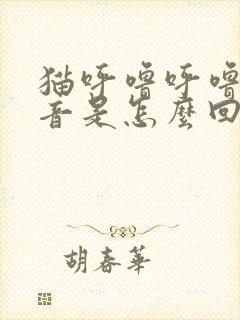 猫呼噜呼噜
音是怎麼回
胡春華